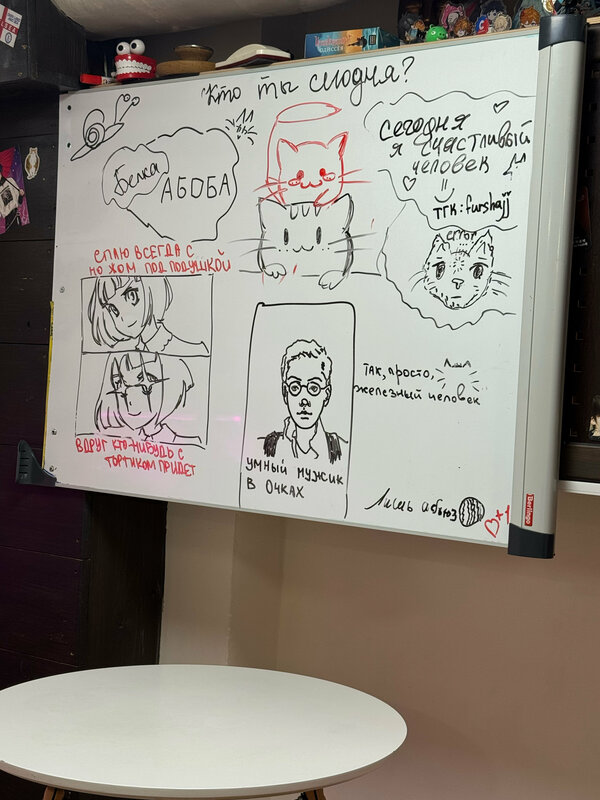 Кто ты сегодня?
Белка
АБОБА
СЕГОДНЯ
Я СЧАСТЛИВЫЙ
ЧЕЛОВЕК
ТГК: furshajj
error
СПЛЮ ВСЕГДА С
НОЖОМ ПОД ПОДУШКОЙ
ВДРУГ КТО-НИБУДЬ С
ТОРТИКОМ ПРИДЕТ
УМНЫЙ МУЖИК
В ОЧКАХ
ТАК, просто,
железный человек
Лишь абьюз
+1